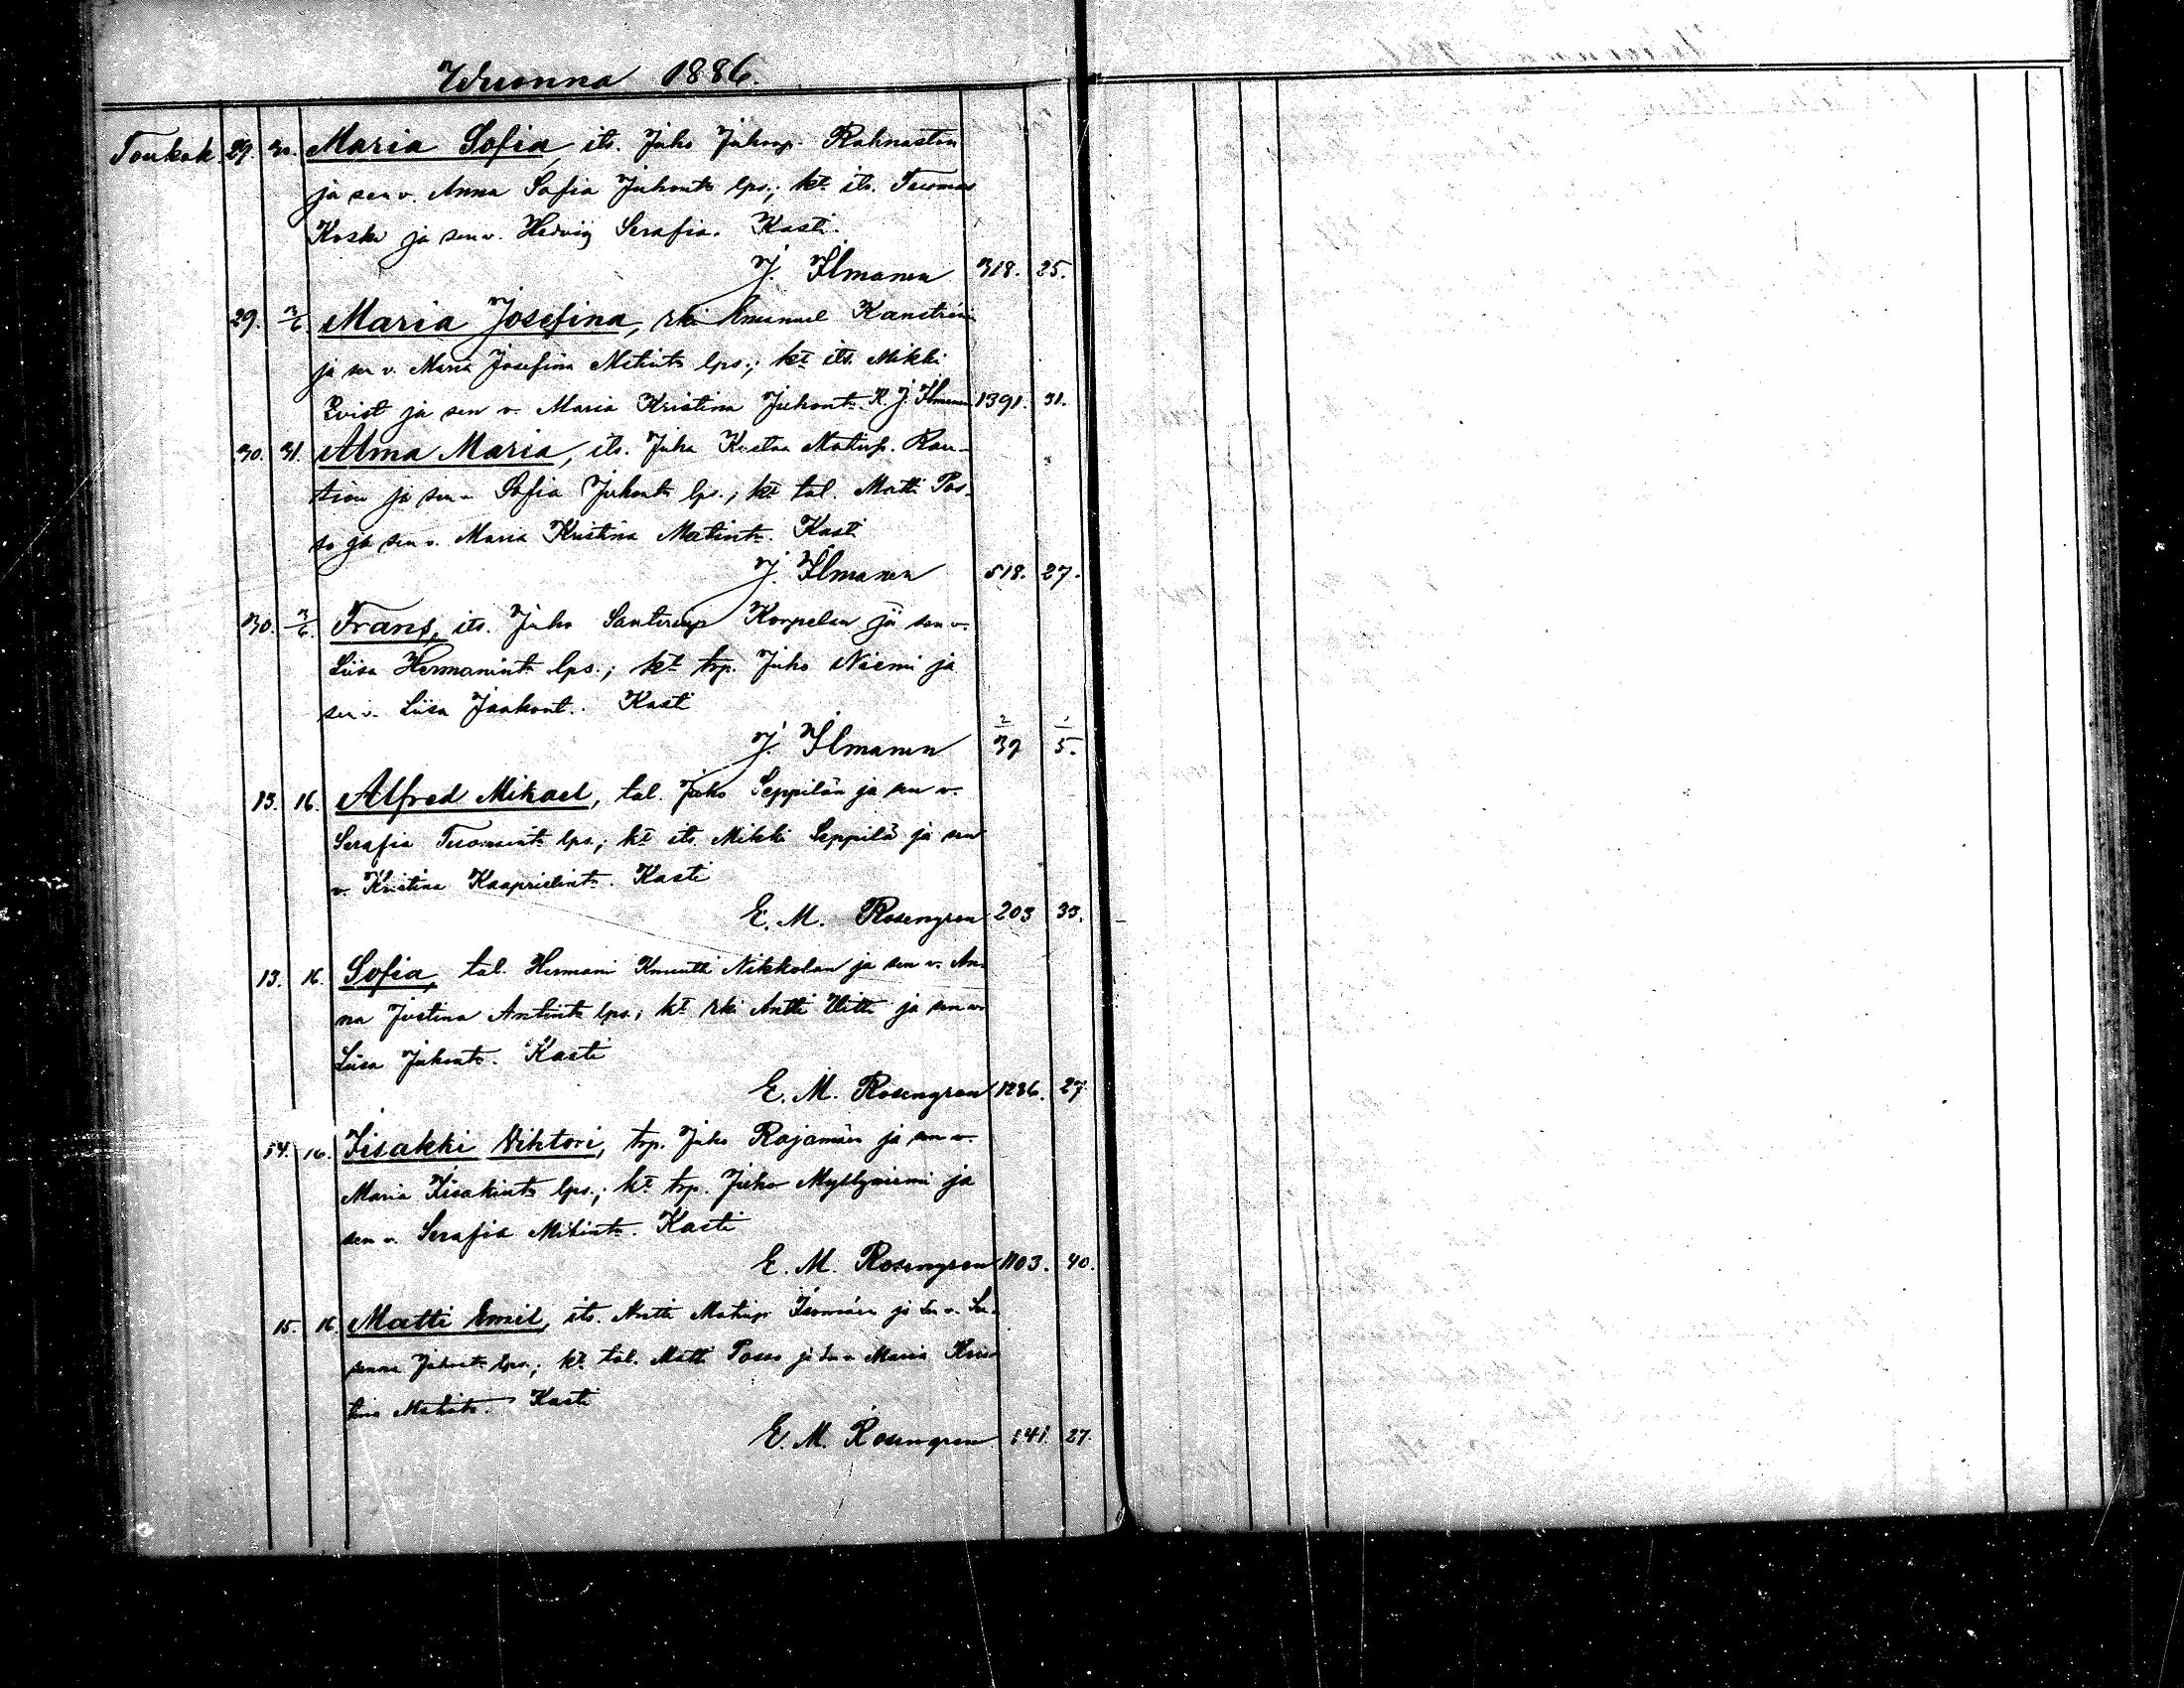 Wuonna 1886.
Toukok. 29. 30. Maria Sofia, its. Juho Juhonp. Rahnaston
ja sen v. Anna Sofia Juhont. lps.; kt. its. Tuomas
Koski ja sen v. Hedvig Serafia. Kasti.
J. Ilmanen 318. 25.
29. 3/6 Maria Josefina, rki Emanuel Kanströin
ja sen v. Maria Josefina Matint. lps.; kt. its. Mikki
Qvist ja sen v. Maria Kristina Juhont. K. J. Ilmanen 1391. 31.
30. 31. Alma Maria, its. Juha Kustaa Matinp. Rau-
tion ja sen v. Sofia Juhont. lps.; kt. tal. Matti Pos-
so ja sen v. Maria Kristina Matint. Kasti
J. Ilmanen 518. 27.
30. 3/6. Frans, its. Juho Santerinp. Korpelan ja sen v.
Liisa Hermanint. lps.; kt. trp. Juho Niemi ja
sen v. Liisa Jaakont. Kasti
J. Ilmanen 2/39 1/5.
13. 16. Alfred Mikael, tal. Juho Seppilän ja sen v.
Serafia Tuomaint. lps.; kt. its. Mikki Seppilä ja sen
v. Kristina Kaaprielint. Kasti
E. M. Rosengren 203 33.
13. 16. Sofia, tal. Hermani Knuutti Nikkolan ja sen v. An-
na Justina Antint. lps.; kt. rki Antti Uitti ja sen v.
Liisa Juhont. Kasti
E. M. Rosengren 1236. 27.
14. 16. Iisakki Vihtori, trp. Juho Rajamäen ja sen v.
Maria Iisakint. lps.; kt. trp. Juho Myllyniemi ja
sen v. Serafia Matint. Kasti
E. M. Rosengren 1103. 40.
15. 16. Matti Emil, its. Antti Matinp. Isomäen ja sen v. Su-
sanna Juhont. lps.; kt. tal. Matti Posso ja sen v. Maria Kris-
tina Matint. Kasti
E. M. Rosengren 141. 27.